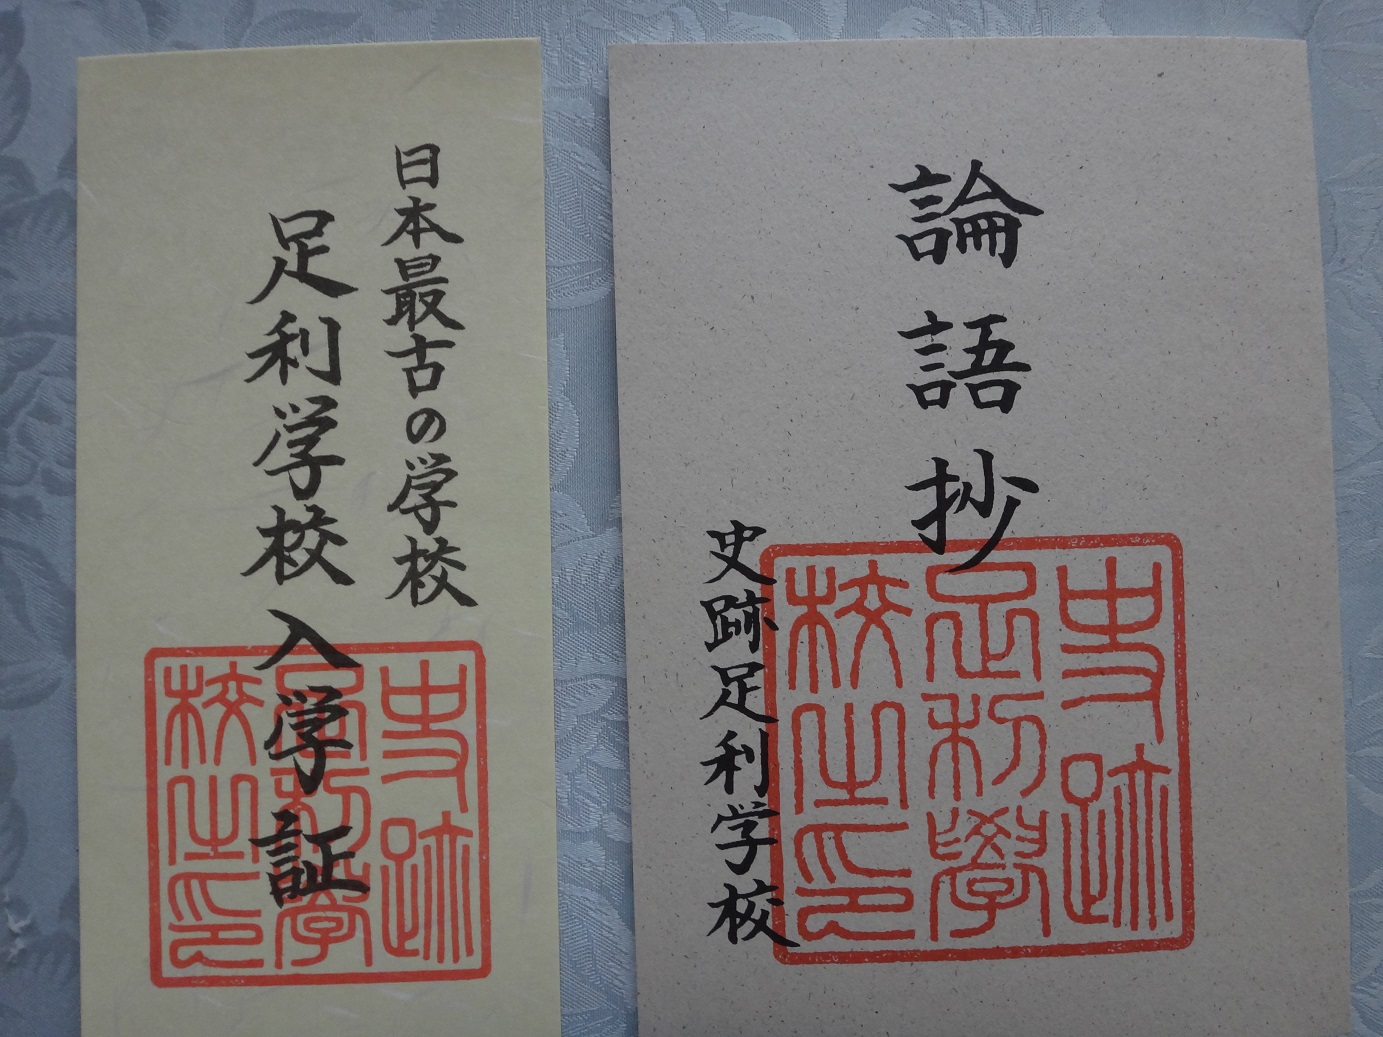 日本最古の学校
足利学校入学証
史跡
足利学
校之印
論語抄
史跡足利学校
史跡
足利學
校之印